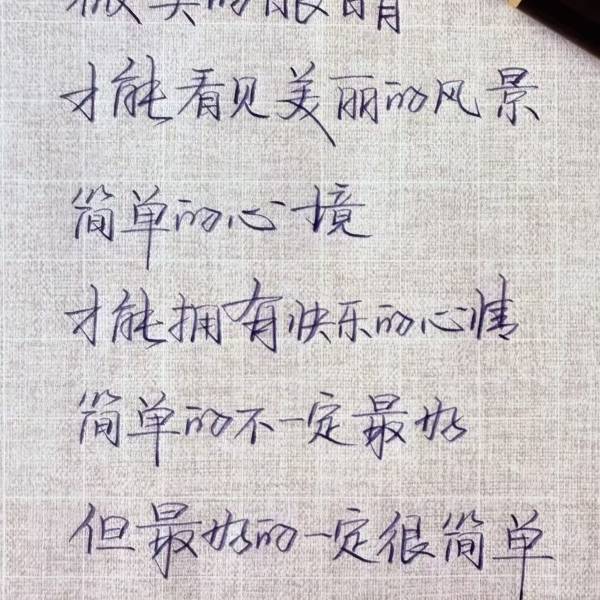 微笑的眼睛
才能看见美丽的风景
简单的心境
才能拥有快乐的心情
简单的不一定最好
但最好的一定很简单